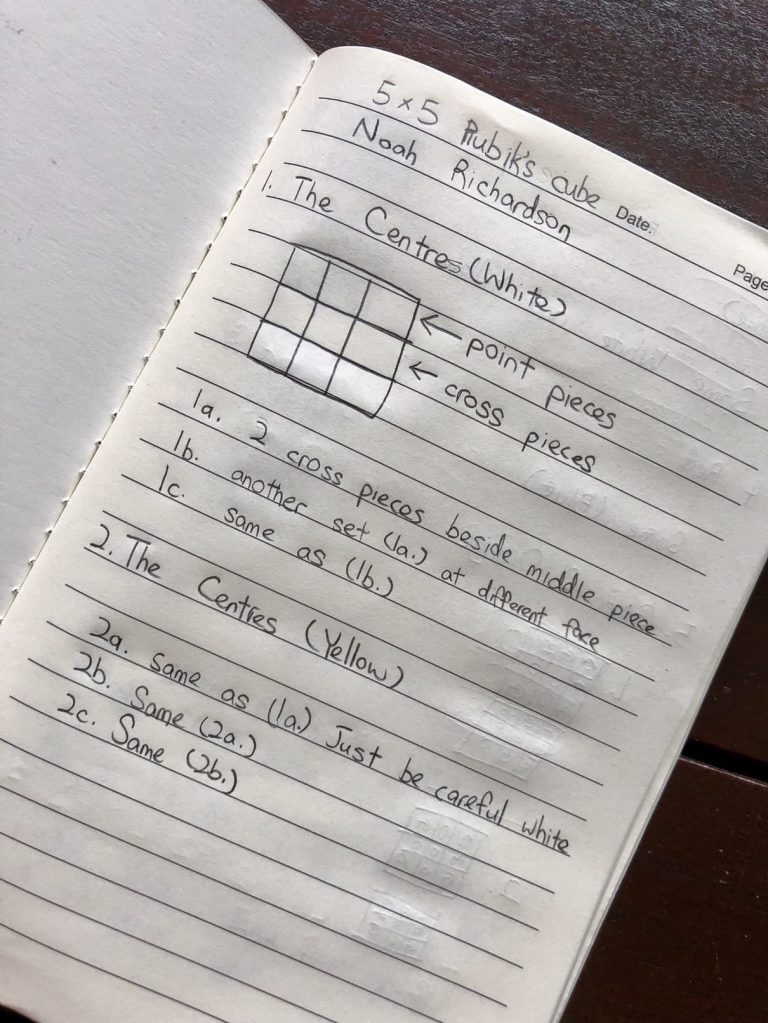 5×5 Rubik's cube
Date:
Noah Richardson
Page
1. The Centres (White)
← point pieces
← cross pieces
1a. 2 cross pieces beside middle piece
1b. another set (1a.) at different face
1c. same as (1b.)
2. The Centres (Yellow)
2a. same as (1a.) Just be careful white
2b. Same (2a.)
2c. Same (2b.)